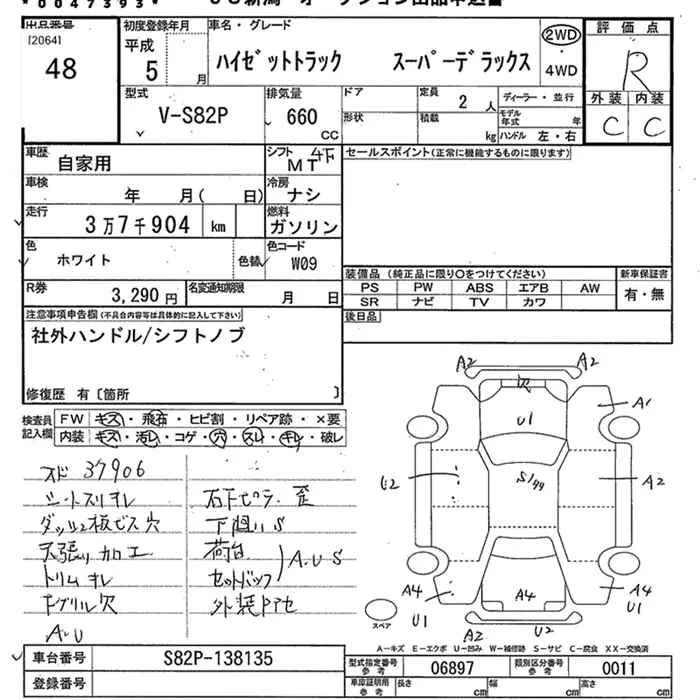 *0047393*
出品番号
[2064]
48
初度登録年月
平成 5 月
車名・グレード
ハイゼットトラック スーパーデラックス
2WD
・
4WD
評価点
R
型式
V-S82P
排気量
660 CC
ドア
定員
2 人
ディーラー・並行
外装 内装
C C
形状
積載
kg
モデル年式
年
ハンドル 左・右
車歴
自家用
シフト
MT 4下
セールスポイント(正常に機能するものに限ります)
車検
年 月( 日)
冷房
ナシ
走行
3万7千904 km
燃料
ガソリン
色
ホワイト
色替
色コード
W09
装備品(純正品に限り○をつけてください)
新車保証書
PS PW ABS エアB AW
有・無
SR ナビ TV カワ
R券
3,290円
名変通知期限
月 日
後日品
注意事項申告欄(不具合内容等は具体的に記入して下さい)
社外ハンドル/シフトノブ
修復歴 有〔箇所 〕
検査員
記入欄
FW キズ・飛石・ヒビ割・リペア跡・×要
内装 キズ・汚レ・コゲ・穴・スレ・キレ・破レ
37906
シートスリキレ
ダッシュ板ビス穴
天張り加工
トリムキレ
Fグリル欠
A・U
石下ピラー歪
下廻りS
荷台
セットバック
A・U・S
A2 A2
欠
U1
A1
U2
S/ササ
A2
A4
U1
A4
A4
U1
A2 U2
スペア
A-キズ E-エクボ U-凹み W-補修跡 S-サビ C-腐食 XX-交換済
車台番号
S82P-138135
登録番号
型式指定番号
参考
06897
類別区分番号
参考
0011
車庫証明用
参考
長さ cm
幅 cm
高さ cm